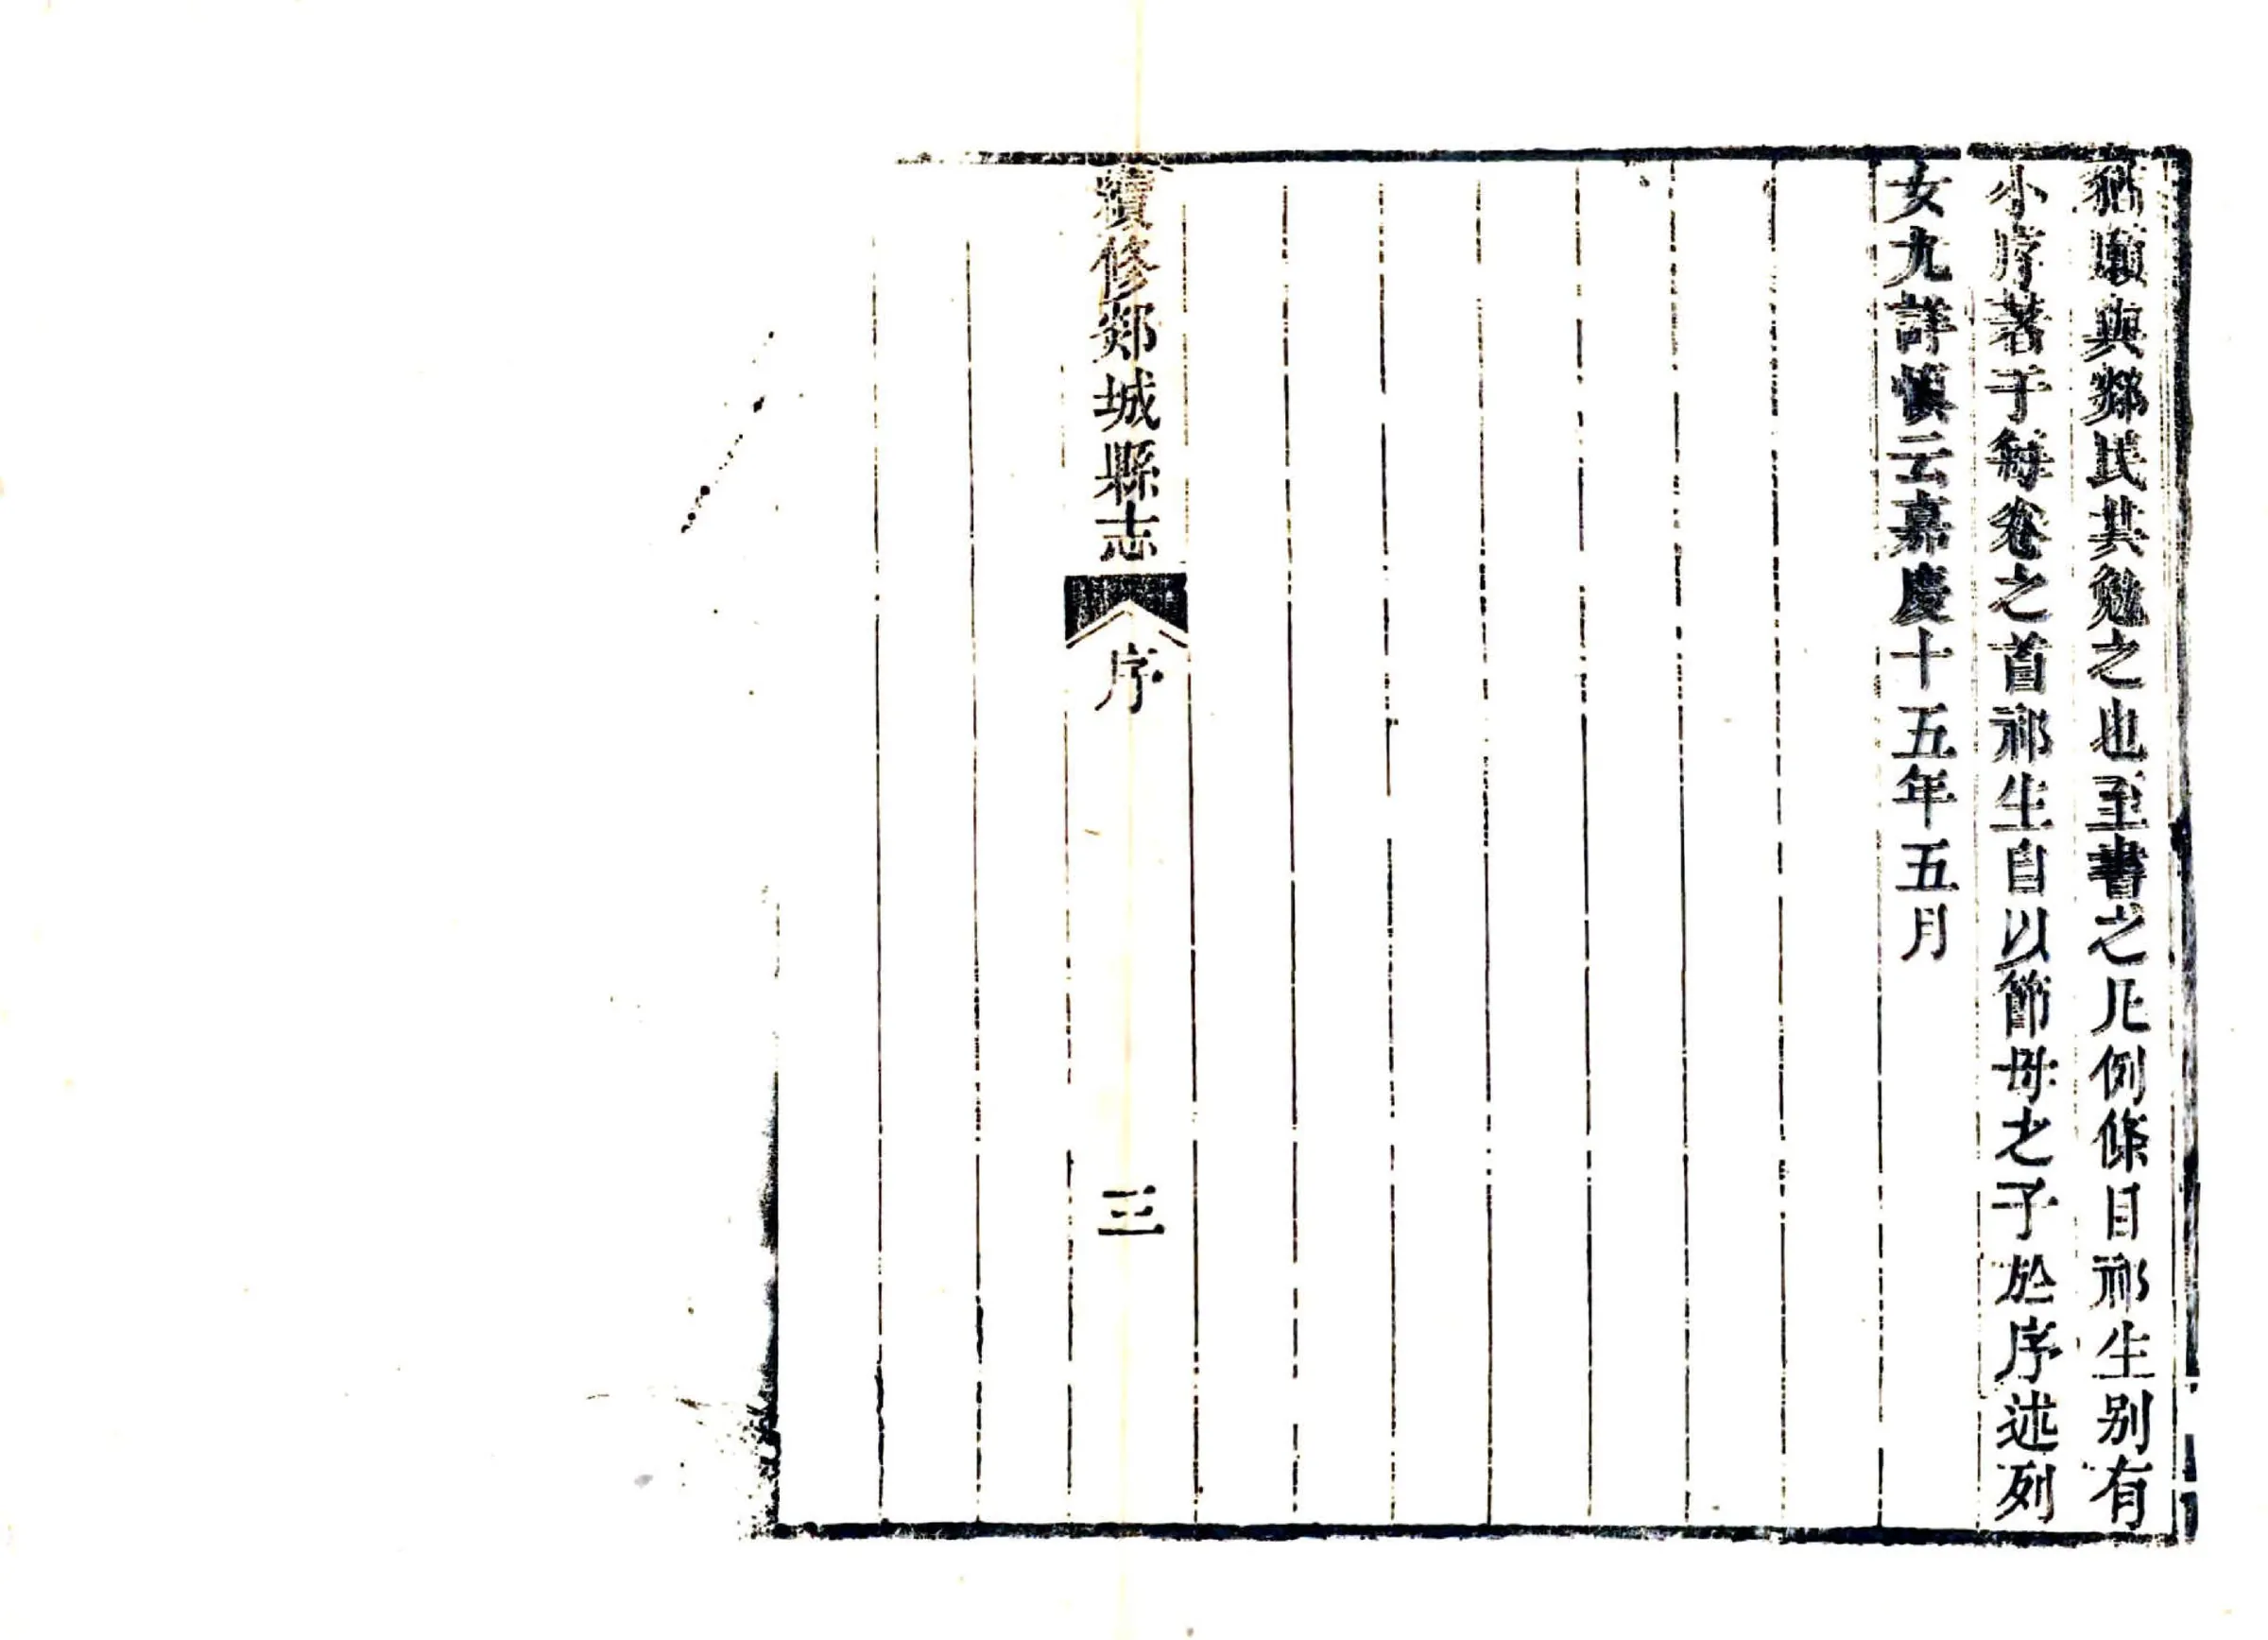 猶願與郯民共勉之也至書之凡例條目祁生别有
小序著于每卷之首祁生自以節母之子於序述列
女尤詳慎云嘉慶十五年五月
續修郯城縣志
序
三